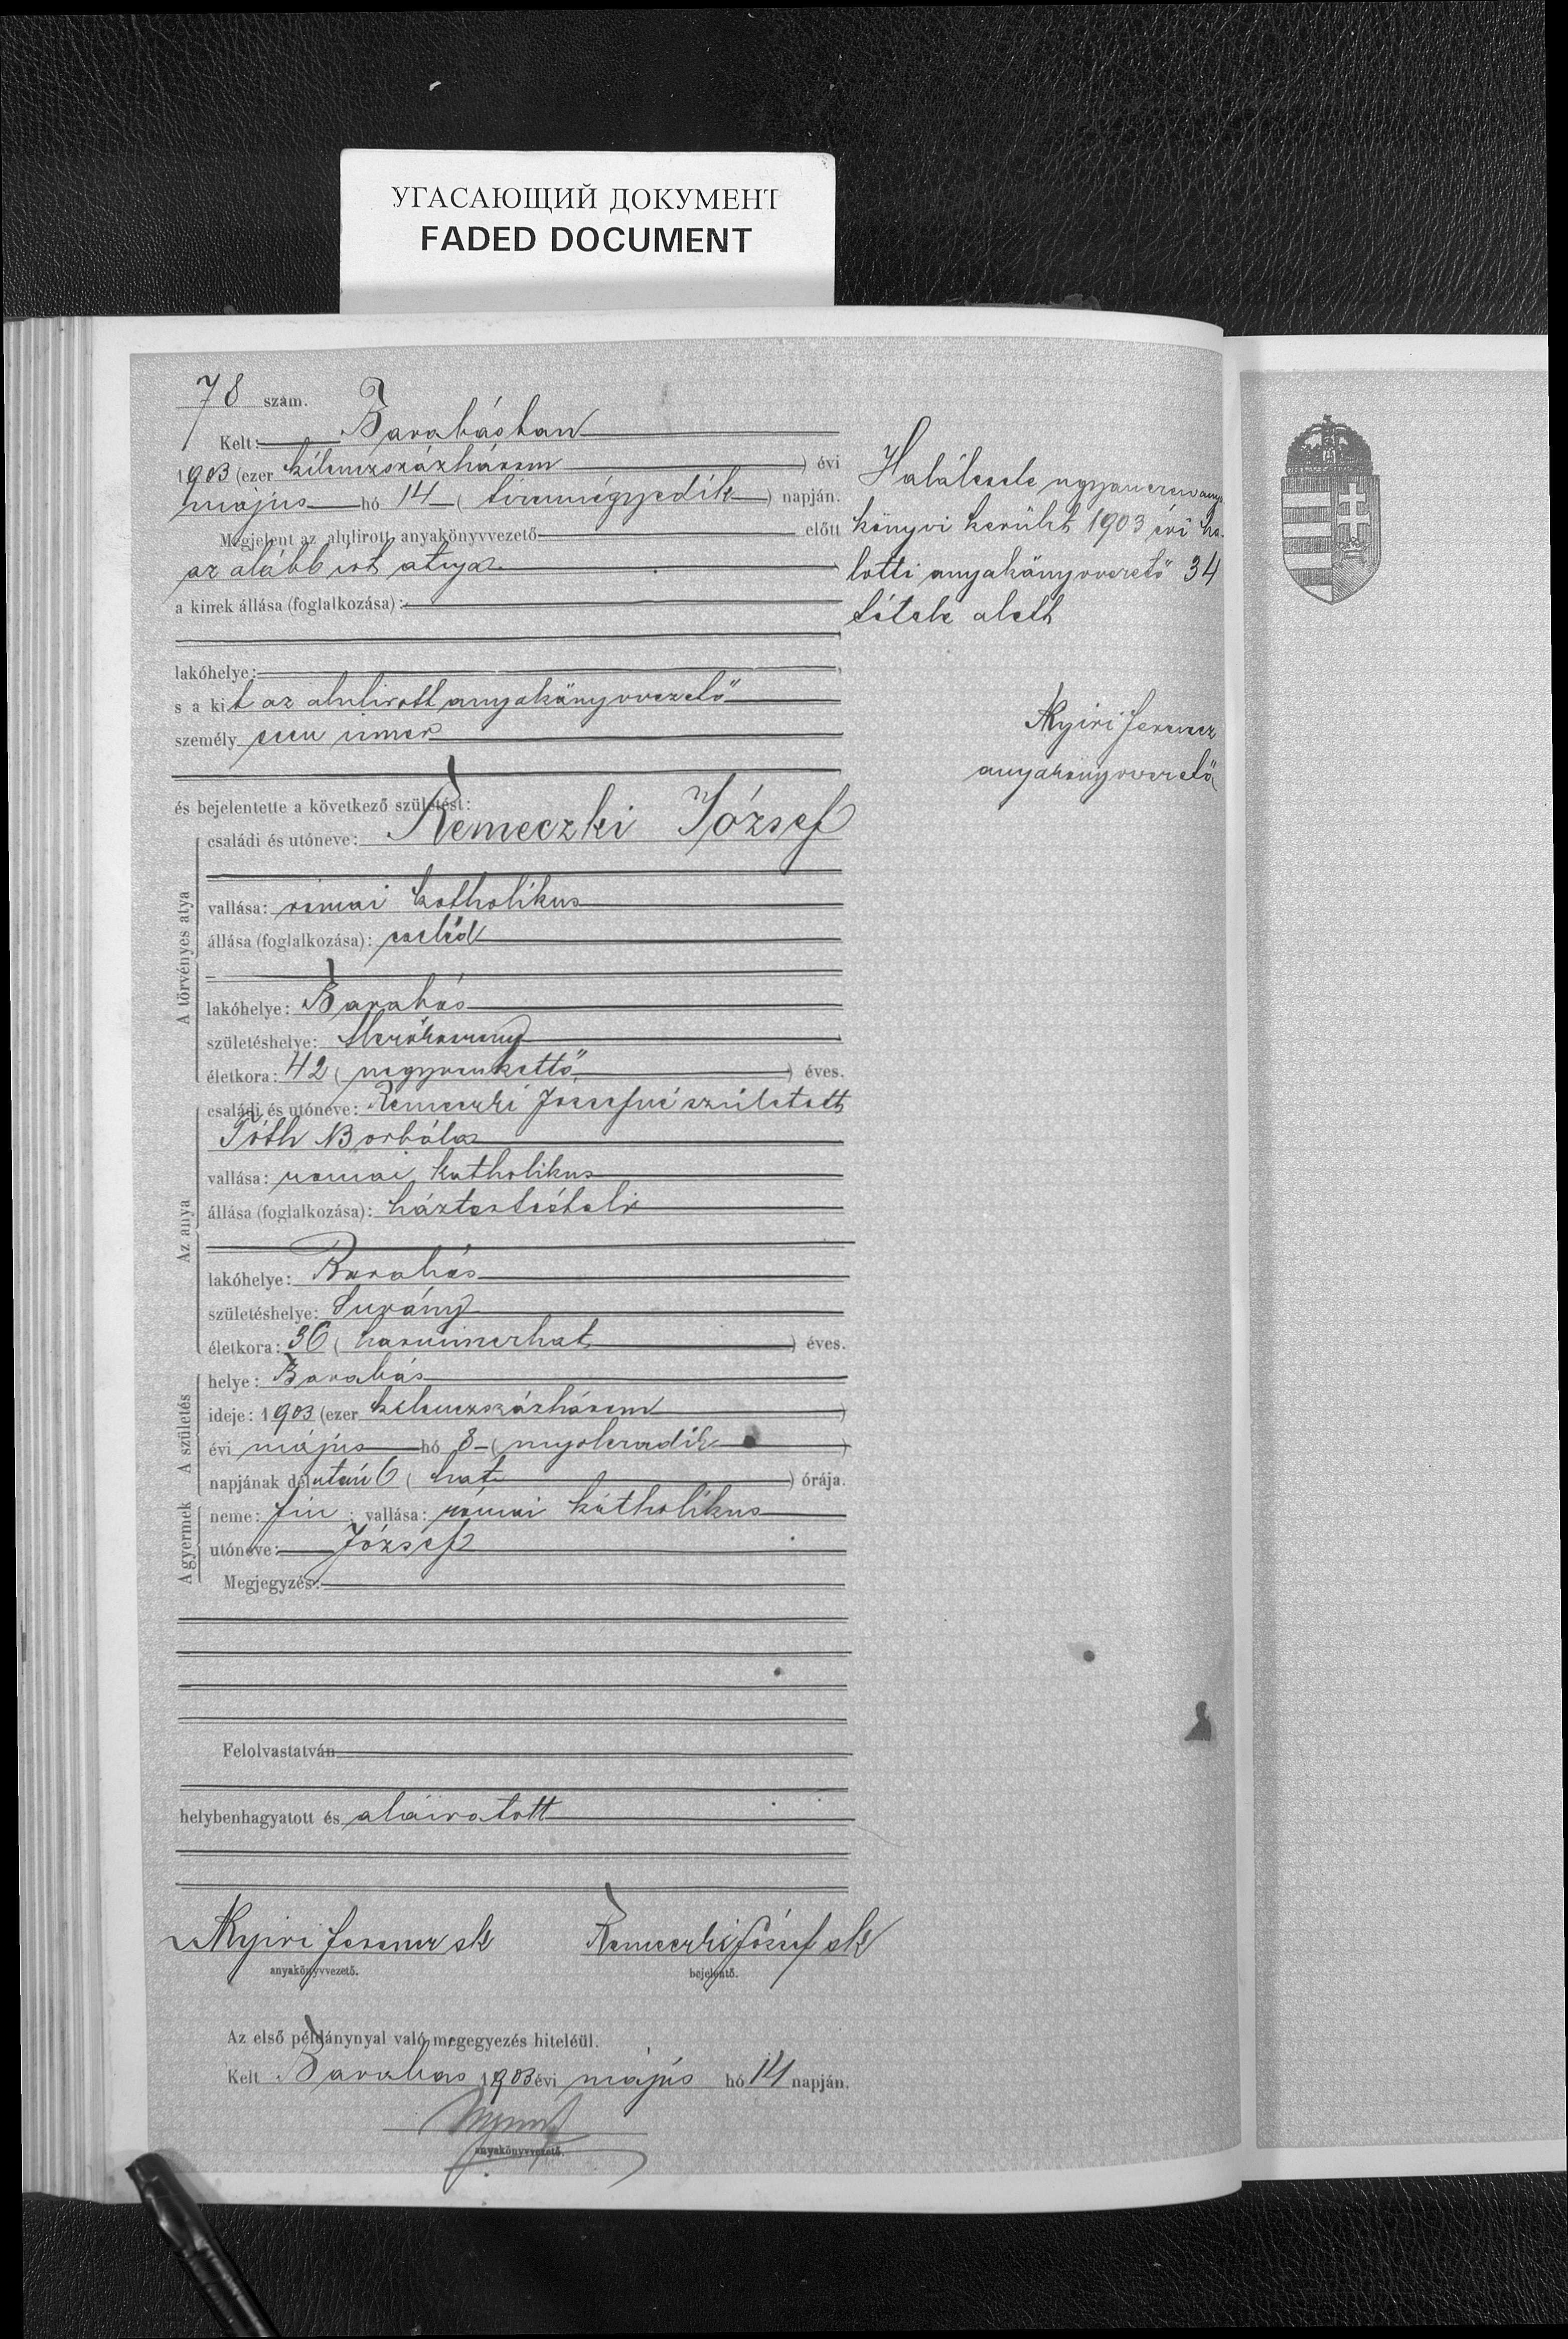 УГАСАЮЩИЙ ДОКУМЕНТ
FADED DOCUMENT
78 szám.
Kelt: Barabásban
1903 (ezer kilenczszázhárom) évi
május hó 14 (tizennégyedik) napján.
Megjelent az alulirott anyakönyvvezető előtt
az alább irt atya
a kinek állása (foglalkozása):
lakóhelye:
s a kit az alulirott anyakönyvvezető
személyesen ismer
és bejelentette a következő születést:
A törvényes atya
családi és utóneve: Remeczki József
vallása: római katholikus
állása (foglalkozása): cseléd
lakóhelye: Barabás
születéshelye:
életkora: 42 (negyvenkettő) éves.
Az anya
családi és utóneve: Remeczki Józsefné született
Tóth Borbála
vallása: római katholikus
állása (foglalkozása): háztartásbeli
lakóhelye: Barabás
születéshelye: Surány
életkora: 36 (harminczhat) éves.
A születés
helye: Barabás
ideje: 1903 (ezer kilenczszázhárom)
évi május hó 8 (nyolczadik)
napjának délután 6 (hat) órája.
A gyermek
neme: fiu; vallása: római katholikus
utóneve: József
Megjegyzés:
Felolvastatván
helybenhagyatott és aláiratott
Nyiri Ferencz sk Remeczki József sk
anyakönyvvezető. bejelentő.
Az első példánynyal való megegyezés hiteléül.
Kelt Barabás 1903 évi május hó 14 napján.
anyakönyvvezető.
Halálesete ugyanezen anya
könyvi kerület 1903 évi ha-
lotti anyakönyvvezető 34
tétele alatt
Nyiri Ferencz
anyakönyvvezető